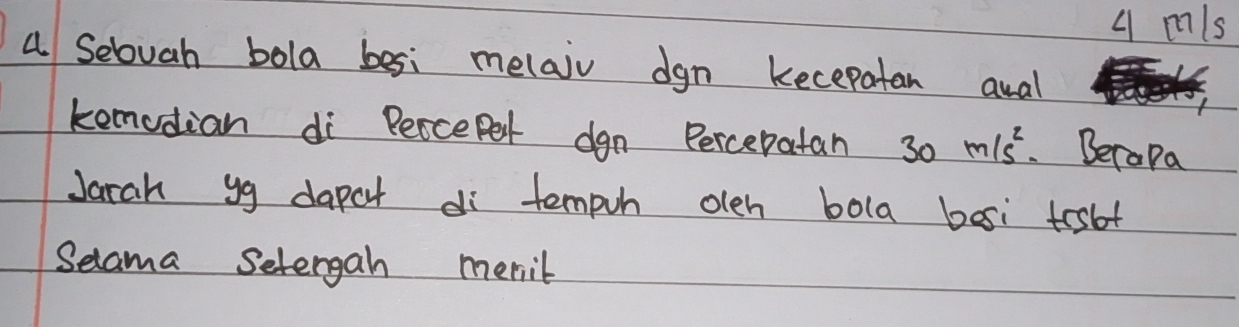 4 m/s
4 Sebuah bola besi melaju dgn kecepatan awal
kemudian di Percepat dgn Percepatan 30 m/s². Berapa
Jarak yg dapat di tempuh oleh bola besi trsbt
Selama Setengah menit